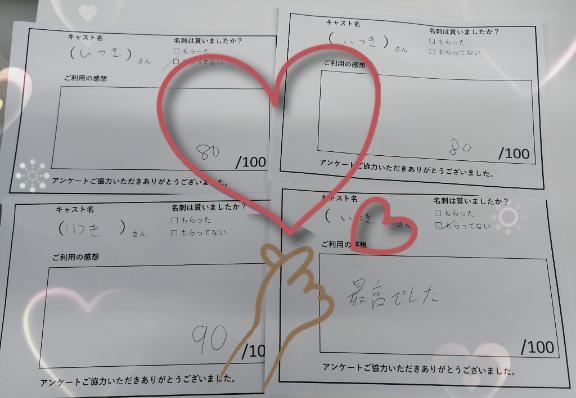 キャスト名 名刺は貰いましたか?
(いつき) さん □もらった
☑もらってない
ご利用の感想
80 /100
アンケートご協力いただきありがとうございました。
キャスト名 名刺は貰いましたか?
(いつき) □もらった
さん □もらってない
ご利用の感想
80 /100
アンケートご協力いただきありがとうございました。
キャスト名 名刺は貰いましたか?
(いつき) さん □もらった
□もらってない
ご利用の感想
90 /10
アンケートご協力いただきありがとうございました。
キャスト名 名刺は貰いましたか?
(いつき □もらった
☑もらってない
ご利用の感想
最高でした
/100
アンケートご協力いただきありがとうございました。